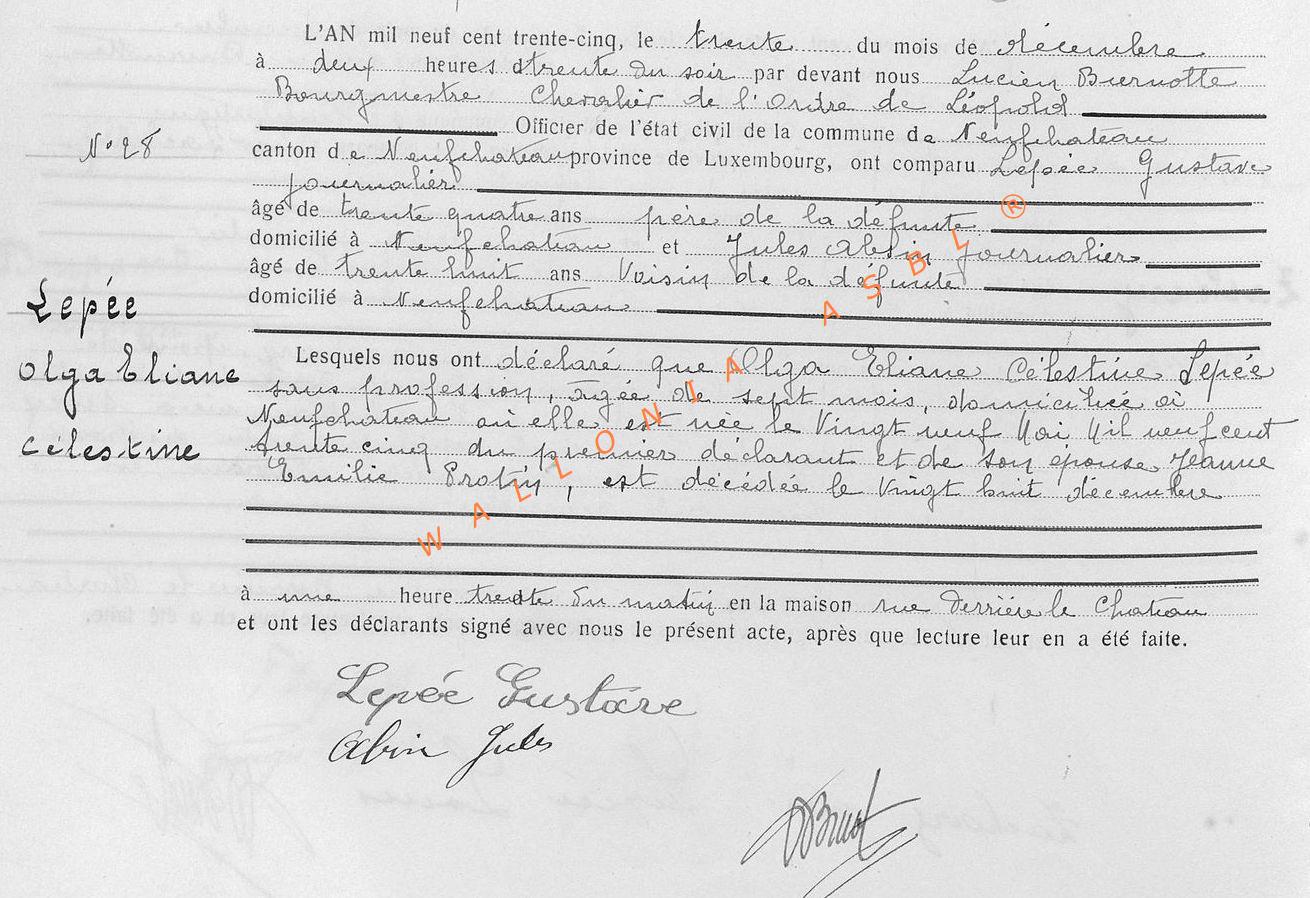 L'AN mil neuf cent trente-cinq, le trente du mois de décembre
à deux heures trente du soir par devant nous Lucien Burnotte
Bourgmestre Chevalier de l'Ordre de Léopold
Officier de l'état civil de la commune de Neufchateau
N° 28
canton de Neufchateau province de Luxembourg, ont comparu Lepée Gustave
journalier
âgé de trente quatre ans père de la défunte
domicilié à Neufchateau et Jules Albin journalier
âgé de trente huit ans Voisin de la défunte
domicilié à Neufchateau
Lepée
Olga Eliane
Célestine
Lesquels nous ont déclaré que Olga Eliane Célestine Lepée
sans profession, agée de sept mois, domiciliée à
Neufchateau où elle est née le Vingt neuf Mai Mil neuf cent
trente cinq du premier déclarant et de son épouse Jeanne
Emilie Protin, est décédée le vingt huit décembre
à une heure trente du matin en la maison rue derrière le Chateau
et ont les déclarants signé avec nous le présent acte, après que lecture leur en a été faite.
Lepée Gustave
Albin Jules
WALLONIA ASBL ®